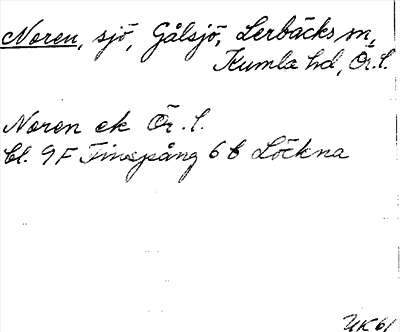 Noren, sjö, Gålsjö, Lerbäcks sn,
Kumla hd, Ör. l.
Noren ek Ör. l.
bl. 9F Finspång 6b Löckna
UK61